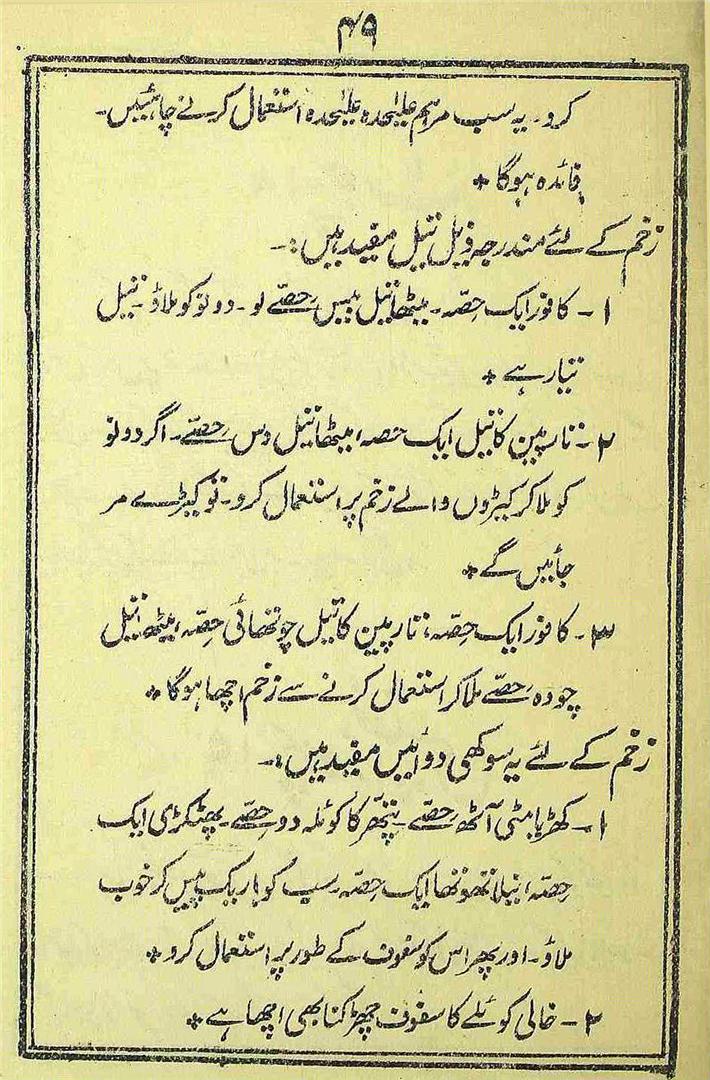 ۴۹
کرو۔ یہ سب مراہم علیٰحدہ علیٰحدہ استعمال کرنے چاہئیں۔
فائدہ ہوگا ٭
زخم کے لئے مندرجہ ذیل تیل مفید ہیں:۔
۱۔ کافور ایک حِصّہ۔ میٹھا تیل بیس حِصّے لو۔ دونو کو ملاؤ۔ تیل
تیار ہے ٭
۲۔ تارپین کا تیل ایک حصہ، میٹھا تیل دس حِصّے۔ اگر دونو
کو ملا کر کیڑوں والے زخم پر استعمال کرو۔ تو کیڑے مر
جائیں گے ٭
۳۔ کافور ایک حِصّہ، تارپین کا تیل چوتھائی حِصّہ، میٹھا تیل
چودہ حِصّے ملا کر استعمال کرنے سے زخم اچھا ہوگا ٭
زخم کے لئے یہ سوکھی دوائیں مفید ہیں:۔
۱۔ کھڑیا مٹی آٹھ حِصّے۔ پتھر کا کوئلہ دو حِصّے۔ پھٹکڑی ایک
حِصّہ، نیلا تھوتھا ایک حِصّہ۔ سب کو باریک پیس کر خوب
ملاؤ۔ اور پھر اس کو سفوف کے طور پر استعمال کرو ٭
۲۔ خالی کوئلے کا سفوف چھڑکنا بھی اچھا ہے ٭